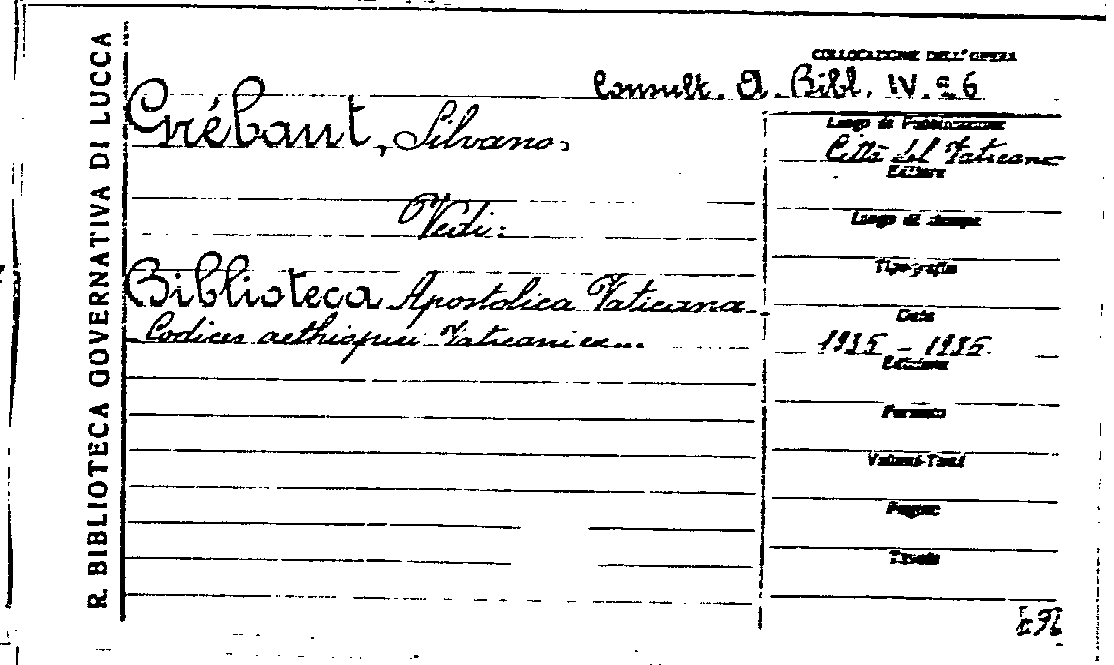 R. BIBLIOTECA GOVERNATIVA DI LUCCA
COLLOCAZIONE DELL'OPERA
Consult. A. Bibl. IV. 26
Grébaut, Silvano.
Vedi:
Biblioteca Apostolica Vaticana
Codices aethiopici Vaticani ecc...
Luogo di Pubblicazione
Città del Vaticano
Editore
Luogo di stampa
Tipografia
Data
1935 - 1935
Edizione
Formato
Volumi-Tomi
Pagine
Tavole